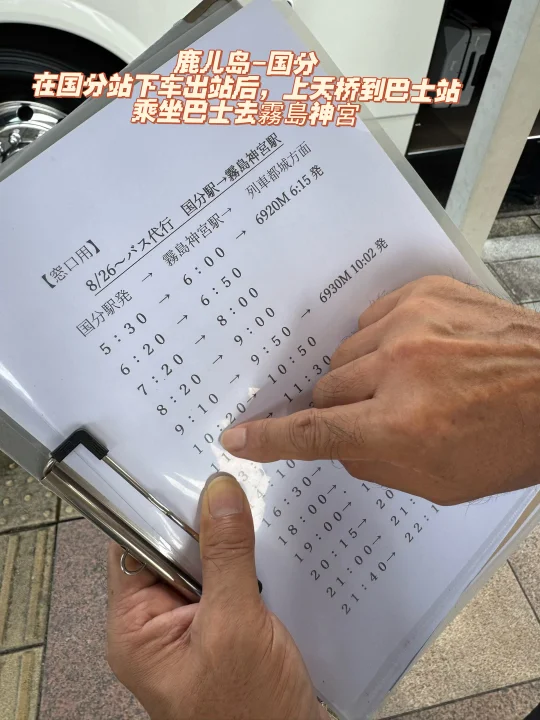 鹿儿岛-国分
在国分站下车出站后，上天桥到巴士站
乘坐巴士去霧島神宮
【窓口用】
8/26～バス代行 国分駅→霧島神宮駅
国分駅発 → 霧島神宮駅→ 列車都城方面
5:30 → 6:00 → 6920M 6:15 発
6:20 → 6:50
7:20 → 8:00
8:20 → 9:00
9:10 → 9:50 → 6930M 10:02 発
10:20→ 10:50
11:30
16:30→
18:00→
19:00→
20:15→ 20
21:00→ 21:
21:40→ 22:1